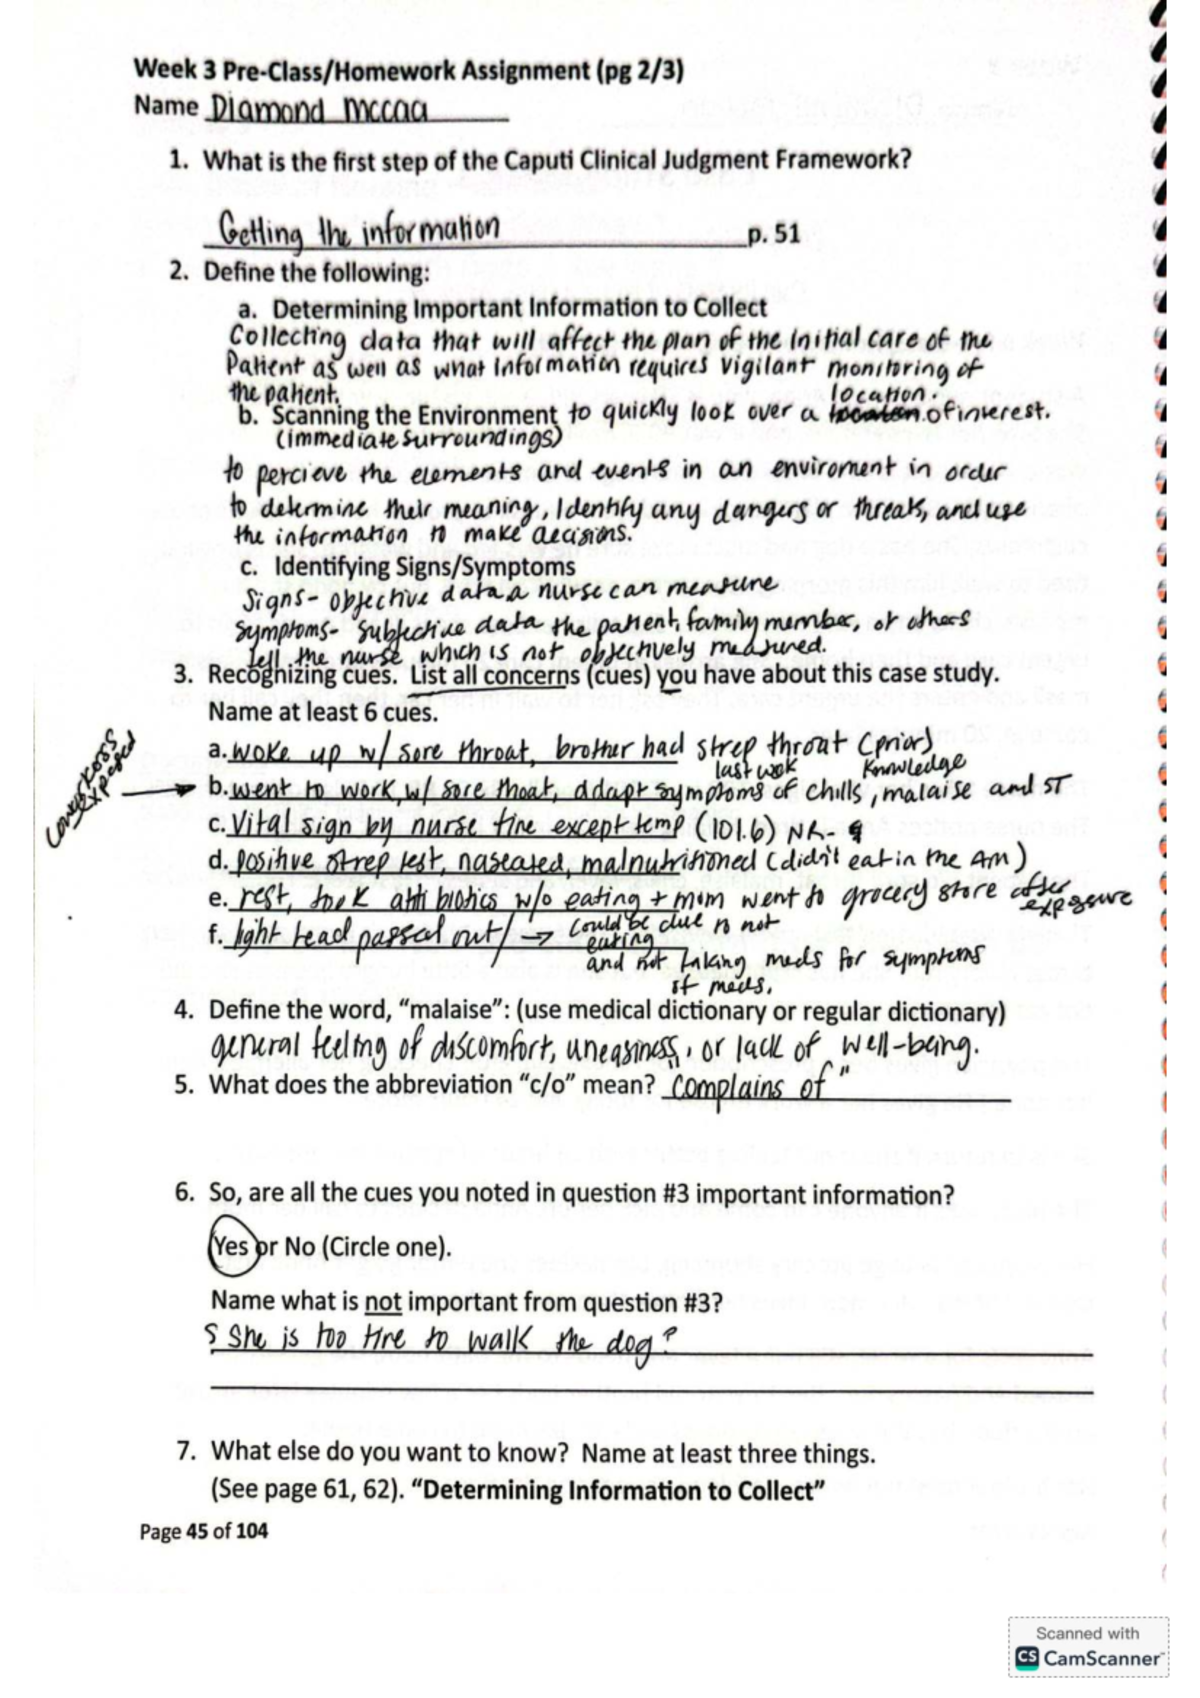 Week 3 Pre-Class/Homework Assignment (pg 2/3)
Name Diamond mccaa
1. What is the first step of the Caputi Clinical Judgment Framework?
Getting the information p. 51
2. Define the following:
a. Determining Important Information to Collect
Collecting data that will affect the plan of the initial care of the
Patient as well as what information requires vigilant monitoring of
the patient.
location.
b. Scanning the Environment to quickly look over a of interest.
(immediate surroundings)
to percieve the elements and events in an enviroment in order
to determine their meaning, identify any dangers or threats, and use
the information to make decisions.
c. Identifying Signs/Symptoms
Signs- objective data a nurse can measure
Symptoms- Subjective data the patient, family member, or others
tell the nurse which is not objectively measured.
3. Recognizing cues. List all concerns (cues) you have about this case study.
Name at least 6 cues.
a. woke up w/ sore throat, brother had strep throat (prior)
last wek knowledge
coworkers exposed
b. went to work, w/ sore thoat, adapt symptoms of chills, malaise and ST
c. Vital sign by nurse fine except temp (101.6)
d. positive strep test, naseated, malnutritioned (didn't eat in the AM)
e. rest, took anti biotics w/o eating + mom went to grocery store after
exposure
f. light head passed out/→ could be due to not
eating
and not taking meds for symptoms
of meds.
4. Define the word, "malaise": (use medical dictionary or regular dictionary)
general feeling of discomfort, uneasiness, or lack of well-being.
5. What does the abbreviation "c/o" mean? "complains of"
6. So, are all the cues you noted in question #3 important information?
Yes or No (Circle one).
Name what is not important from question #3?
She is too tire to walk the dog?
7. What else do you want to know? Name at least three things.
(See page 61, 62). "Determining Information to Collect"
Page 45 of 104
Scanned with
CS CamScanner